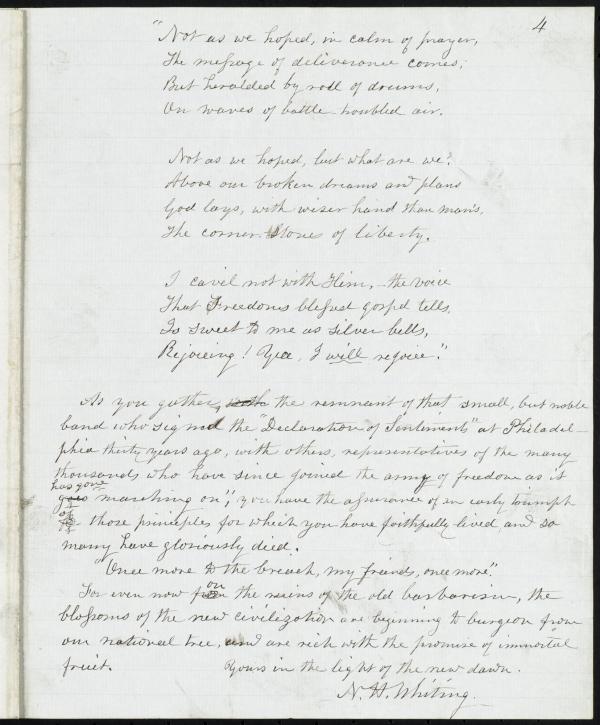 4
"Not as we hoped, in calm of prayer,
The message of deliverance comes,
But heralded by roll of drums,
On waves of battle-troubled air.
Not as we hoped, but what are we?
Above our broken dreams and plans
God lays, with wiser hand than man's,
The corner-stones of liberty.
I cavil not with Him, - the voice
That Freedoms blessed gospel tells,
Is sweet to me as silver bells,
Rejoicing! Yea, I will rejoice".
As you gather, the remnant of that small, but noble
band who signed the "Declaration of Sentiments" at Philadel-
phia thirty years ago, with others, representatives of the many
thousands who have since joined the army of freedom as it
has gone
"marching on", you have the assurance of an early triumph
of those principles for which you have faithfully lived, and so
many have gloriously died.
"Once more to the breach, my friends, once more".
on
For even now from the ruins of the old barbarism, the
blossoms of the new civilization are beginning to burgeon from
our national tree, and are rich with the promise of immortal
fruit. Yours in the light of the new dawn.
N. H. Whiting.